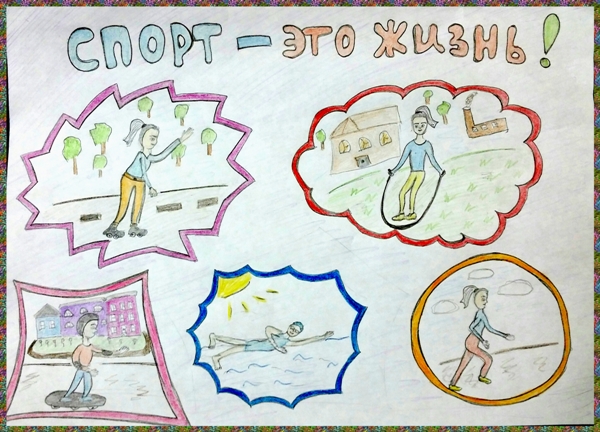 СПОРТ - ЭТО ЖИЗНЬ!